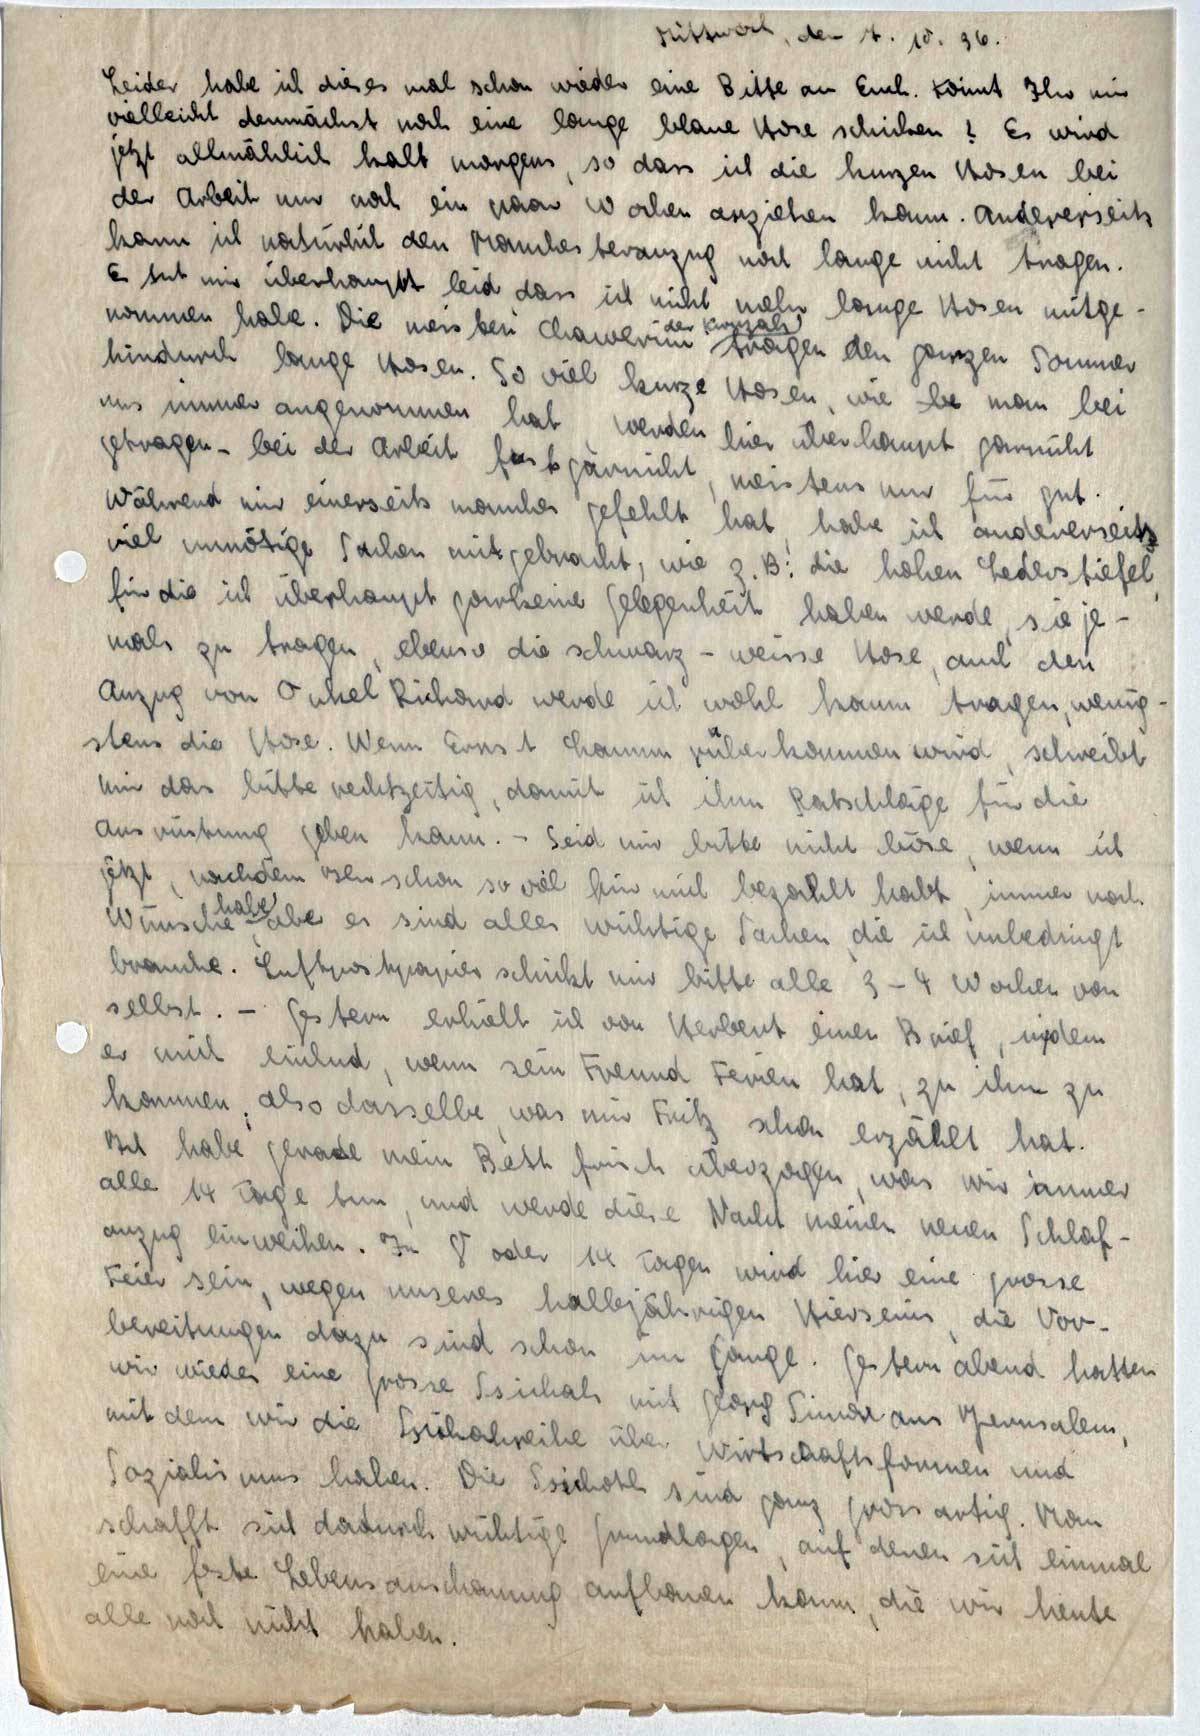 Mittwoch, den 7. 10. 36.
Leider habe ich dieses mal schon wieder eine Bitte an Euch. Könnt Ihr mir
vielleicht demnächst noch eine lange blaue Hose schicken? Es wird
jetzt allmählich kalt morgens, so dass ich die kurzen Hosen bei
der Arbeit nur noch ein paar Wochen anziehen kann. Andererseits
kann ich natürlich den Manchesteranzug noch lange nicht tragen.
Es tut mir überhaupt leid, dass ich nicht mehr lange Hosen mitge-
nommen habe. Die meisten Chawerim der Kwuzah tragen den ganzen Sommer
hindurch lange Hosen. So viel kurze Hosen, wie man bei
uns immer angenommen hat, werden hier überhaupt garnicht
getragen - bei der Arbeit fast garnicht, meistens nur für gut.
Während mir einerseits manches gefehlt hat, habe ich andererseits
viel unnötige Sachen mitgebracht, wie z.B: die hohen Lederstiefel,
für die ich überhaupt garkeine Gelegenheit haben werde, sie je-
mals zu tragen, ebenso die schwarz-weisse Hose, auch den
Anzug von Onkel Richard werde ich wohl kaum tragen, wenig-
stens die Hose. Wenn Ernst Chamm rüberkommen wird, schreibt
mir das bitte rechtzeitig, damit ich ihm Ratschläge für die
Ausrüstung geben kann. - Seid mir bitte nicht böse, wenn ich
jetzt, nachdem Ihr schon so viel für mich bezahlt habt, immer noch
Wünsche habe, aber es sind alles wichtige Sachen, die ich unbedingt
brauche. Luftpostpapier schickt mir bitte alle 3-4 Wochen von
selbst. - Gestern erhielt ich von Herbert einen Brief, indem
er mich einlud, wenn sein Freund Ferien hat, zu ihm zu
kommen, also dasselbe, was mir Fritz schon erzählt hat.
Ich habe gerade mein Bett frisch überzogen, was wir immer
alle 14 Tage tun, und werde diese Nacht meinen neuen Schlaf-
anzug einweihen. In 8 oder 14 Tagen wird hier eine grosse
Feier sein, wegen unseres halbjährigen Hierseins, die Vor-
bereitungen dazu sind schon im Gange. Gestern abend hatten
wir wieder eine grosse Ssichah mit Georg aus Jerusalem,
mit dem wir die Ssichahreihe über Wirtschaftsformen und
Sozialismus haben. Die Ssichoth sind ganz grossartig. Man
schafft sich dadurch wichtige Grundlagen, auf denen sich einmal
eine feste Lebensanschauung aufbauen kann, die wir heute
alle noch nicht haben.